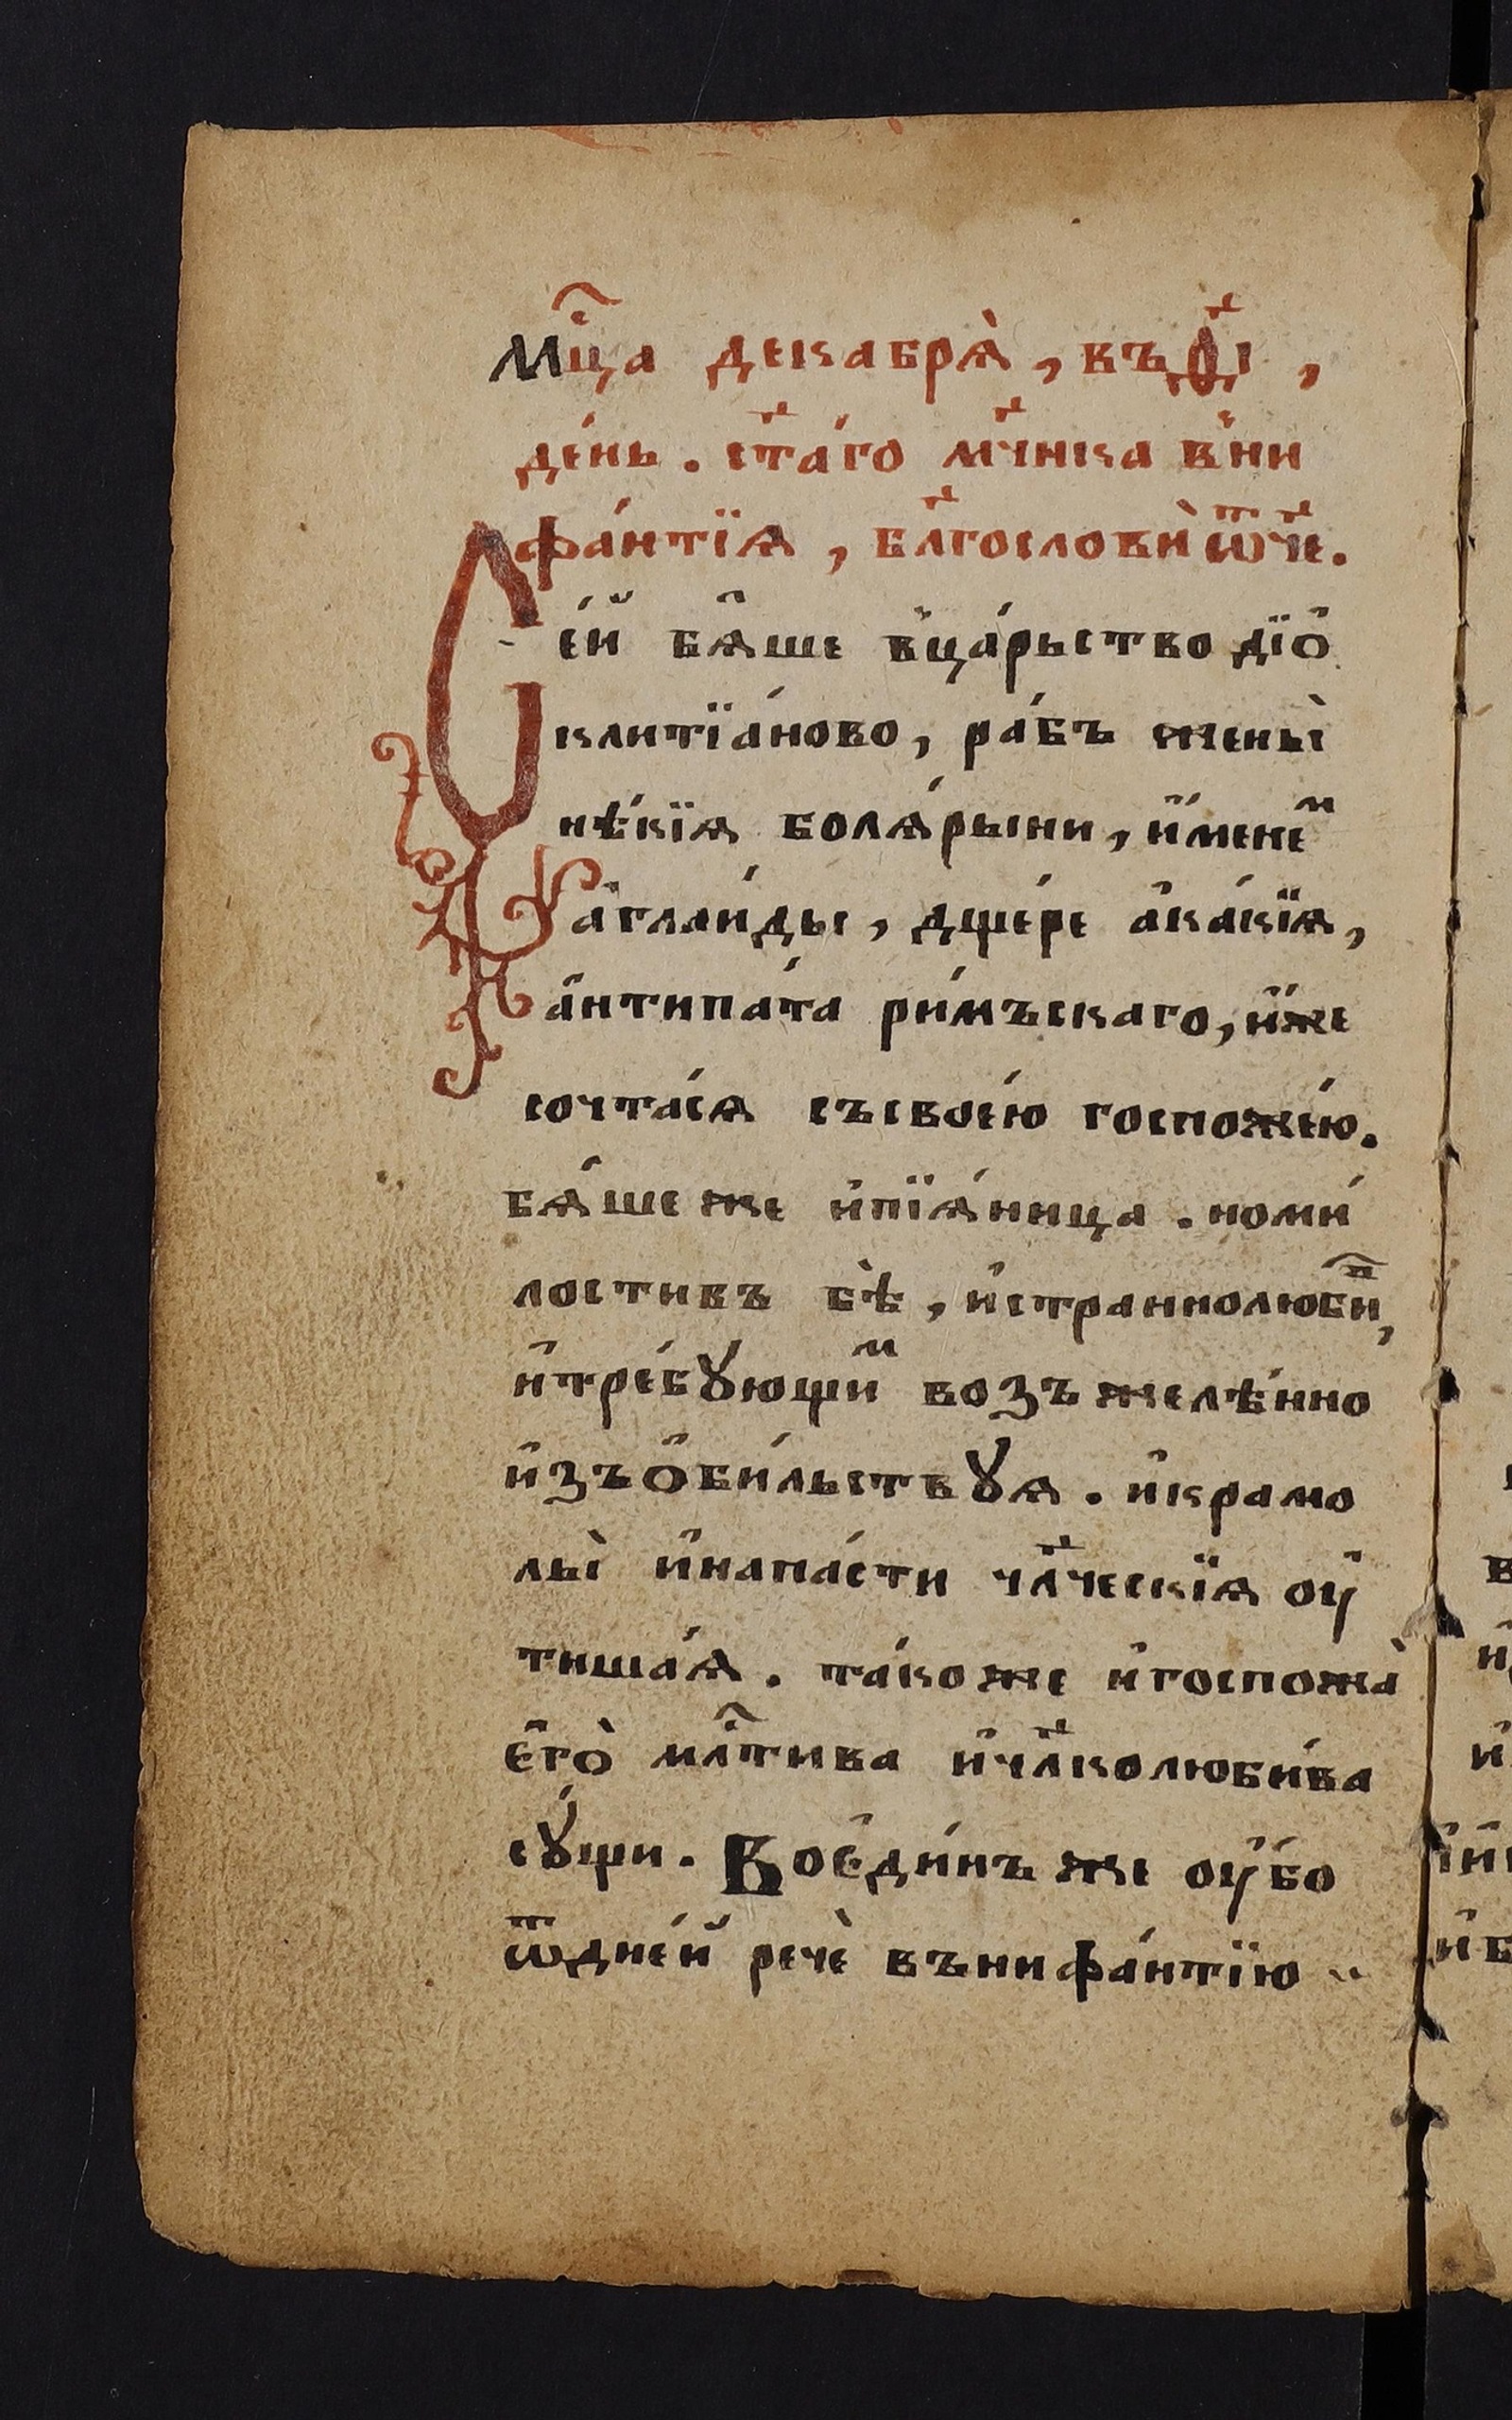 Мц҃а декабрѧ̀, въ ѳ҃і,
де́нь. ст҃а́го мч҃нка в̾ни
фа́нтїѧ, бл҃гословѝ ѿч҃е.
Се́й бѧ̑ше в̾ца́рьство дїо̑
клитїа́ново, ра́бъ жены̀
нѣ́кїѧ болѧ́рыни, и҆́менеⷨ
а҆глаи́ды, дще́ре а҆ка́кїѧ,
а҆нтипа́та ри́мъскаго, и҆́же
сочта́сѧ съсвое́ю госпоже́ю.
бѧ́ше же и҆пїѧ́ница. номи́
лостивъ бѣ̀, и҆страннолюбиⷡ,
и҆тре́бꙋющиⷨ возъжелѣ́нно
и҆зъо҆би́льствꙋѧ. и҆крамо
лы̀ и҆напа́сти чл҃ческїѧ оу҆
тиша́ѧ. та́коже и҆госпожа̀
є҆го̀ мл҃тива и҆чл҃колюби́ва
сꙋ́щи. Воє҆ди́нъ же оу҆́бо
ѿдне́й речѐ вънифа́нтїю